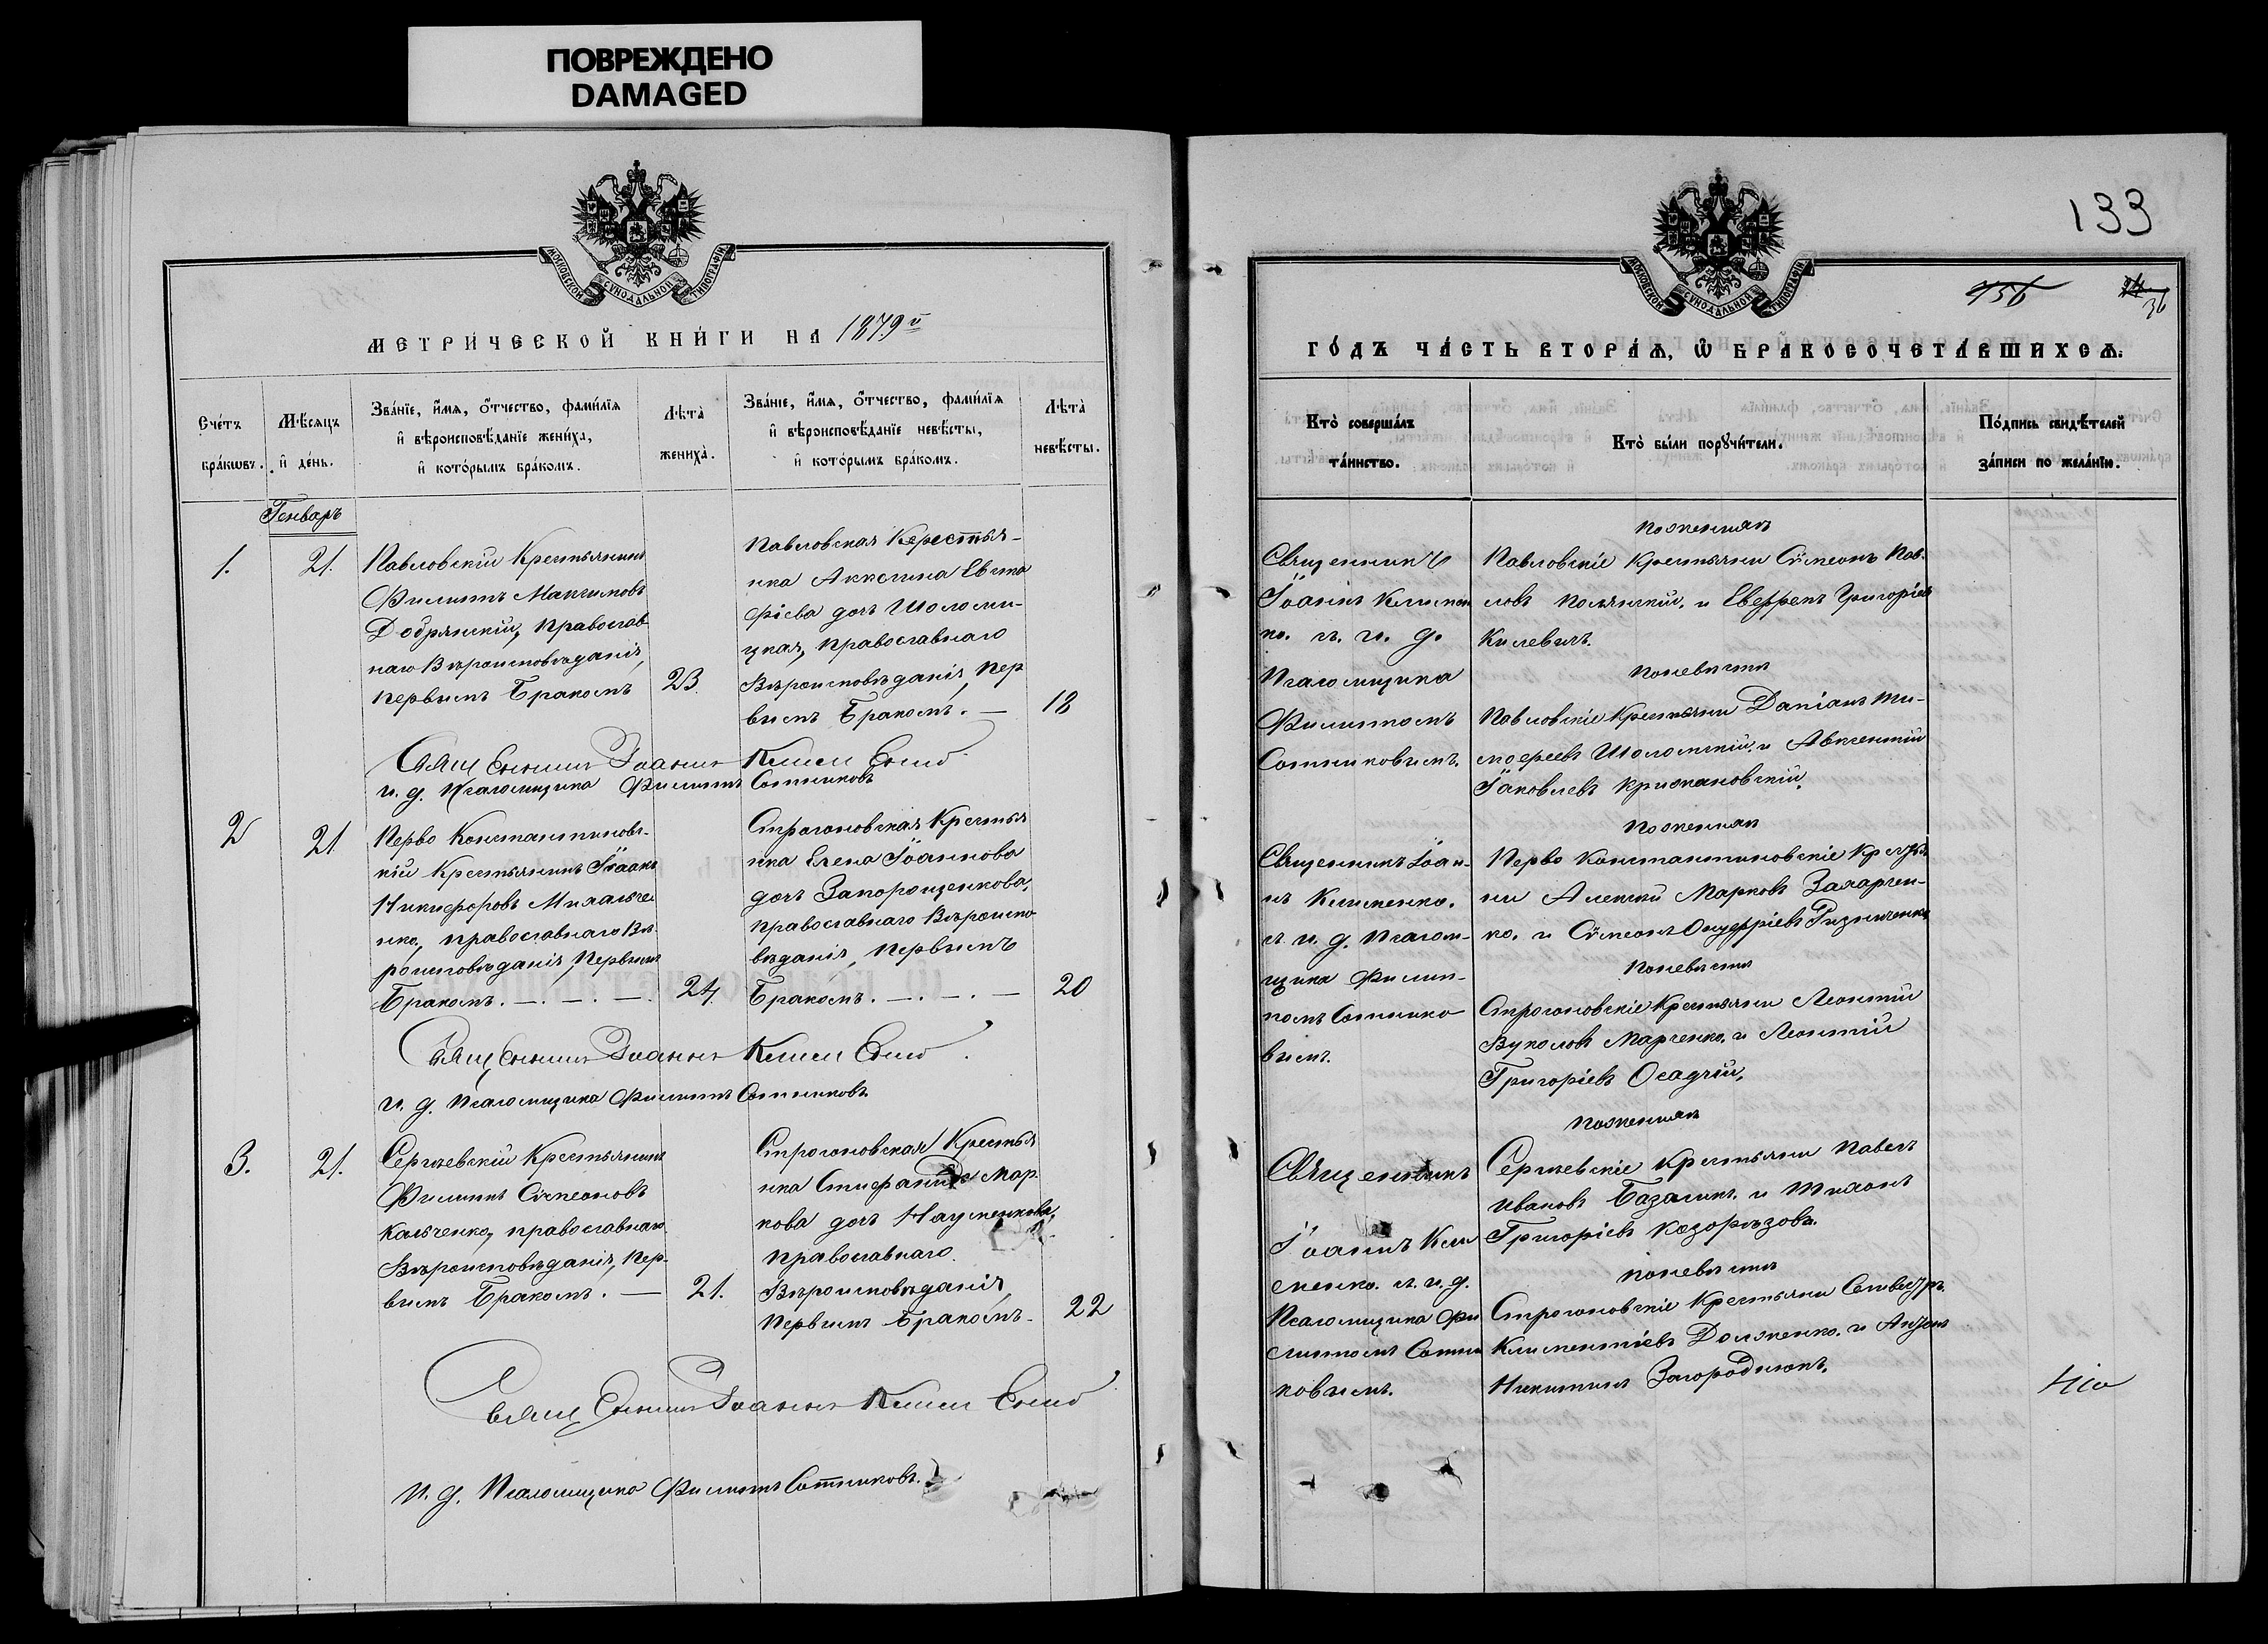 ПОВРЕЖДЕНО
DAMAGED
МОСКОВСКОЙ СѴНОДАЛЬНОЙ ТИПОГРАФІИ
МЕТРИЧЕСКОЙ КНИГИ НА 1879й
Счетъ браковъ.
Мѣсяцъ и день.
Званіе, имя, отчество, фамилія и вѣроисповѣданіе жениха, и которымъ бракомъ.
Лѣта жениха.
Званіе, имя, отчество, фамилія и вѣроисповѣданіе невѣсты, и которымъ бракомъ.
Лѣта невѣсты.
Генваръ
1.
21.
Павловскій Крестьянинъ
Филиппъ Максимовъ
Добрянскій, православ
наго Вѣроисповѣданія,
первымъ Бракомъ
23.
Павловская Керестья-
нка Аккелина Евѳимо
фіева дочь Шоломи-
цкая, православнаго
Вѣроисповѣданія, Пер
вымъ Бракомъ. —
18
Священникъ Іоаннъ Клименко
и. д. Псаломщика Филиппъ Сотниковъ
2
21
Перво Константиновс-
кій Крестьянинъ Ісаакъ
Никифоровъ Михальче
нко, православнаго Вѣ-
роисповѣданія, Первымъ
Бракомъ. —. —. —.
24.
Строгоновская Крестья
нка Елена Іоаннова
дочь Запорощенкова,
православнаго Вѣроиспо
вѣданія, Первымъ
Бракомъ. —. —. —
20
Священникъ Іоаннъ Клименко.
и. д. Псаломщика Филиппъ Сотниковъ.
3.
21.
Сергѣевскій Крестьянинъ
Филиппъ Сѵмеоновъ
Кальченко, православнаго
Вѣроисповѣданія, Пер-
вымъ Бракомъ. —
21.
Строгоновская Крестья
нка Стефанида Мар
кова дочь Науменкова,
православнаго
Вѣроисповѣданія,
Первымъ Бракомъ.
22
Священникъ Іоаннъ Клименко
и. д. Псаломщика Филиппъ Сотниковъ.
133
МОСКОВСКОЙ СѴНОДАЛЬНОЙ ТИПОГРАФІИ
156
36
ГОДЪ ЧАСТЬ ВТОРАЯ, Ѡ БРАКОСОЧЕТАВШИХСЯ.
Кто совершалъ таинство.
Кто были поручители.
Подпись свидѣтелей записи по желанію.
Священникъ
Іоаннъ Климен
ко. съ и. д.
Псаломщика
Филиппомъ
Сотниковымъ.
По женихѣ
Павловскіе Крестьяни Сѵмеонъ Пав-
ловъ Полянскій, и Евѳремъ Григоріевъ
Килевичъ.
По невѣстѣ
Павловскіе Крестьяни Даміанъ Ти-
моѳеевъ Шоломскій, и Авксентій
Іаковлевъ Крижановскій.
Священникъ Іоан-
нъ Клименко.
съ и. д. Псалом-
щика Филип-
помъ Сотнико
вымъ.
По женихѣ
Перво Константиновскіе Крестья
ни Алексѣй Марковъ Захарчен-
ко. и Сѵмеонъ Онуфріевъ Ризниченко
По невѣстѣ
Строгоновскіе Крестьяни Леонтій
Вуколовъ Марченко, и Леонтій
Григоріевъ Осадчій.
Священникъ
Іоаннъ Кли
менко. съ и. д.
Псаломщика Фи
липпомъ Сотни
ковымъ.
По женихѣ
Сергѣевскіе Крестьяни Павелъ
Ивановъ Базаликъ. и Тихонъ
Григоріевъ Козорѣзовъ.
По невѣстѣ
Строгоновскіе Крестьяни Сильвестръ
Климентіевъ Долженко. и Антонъ
Никитинъ Загороднюкъ.